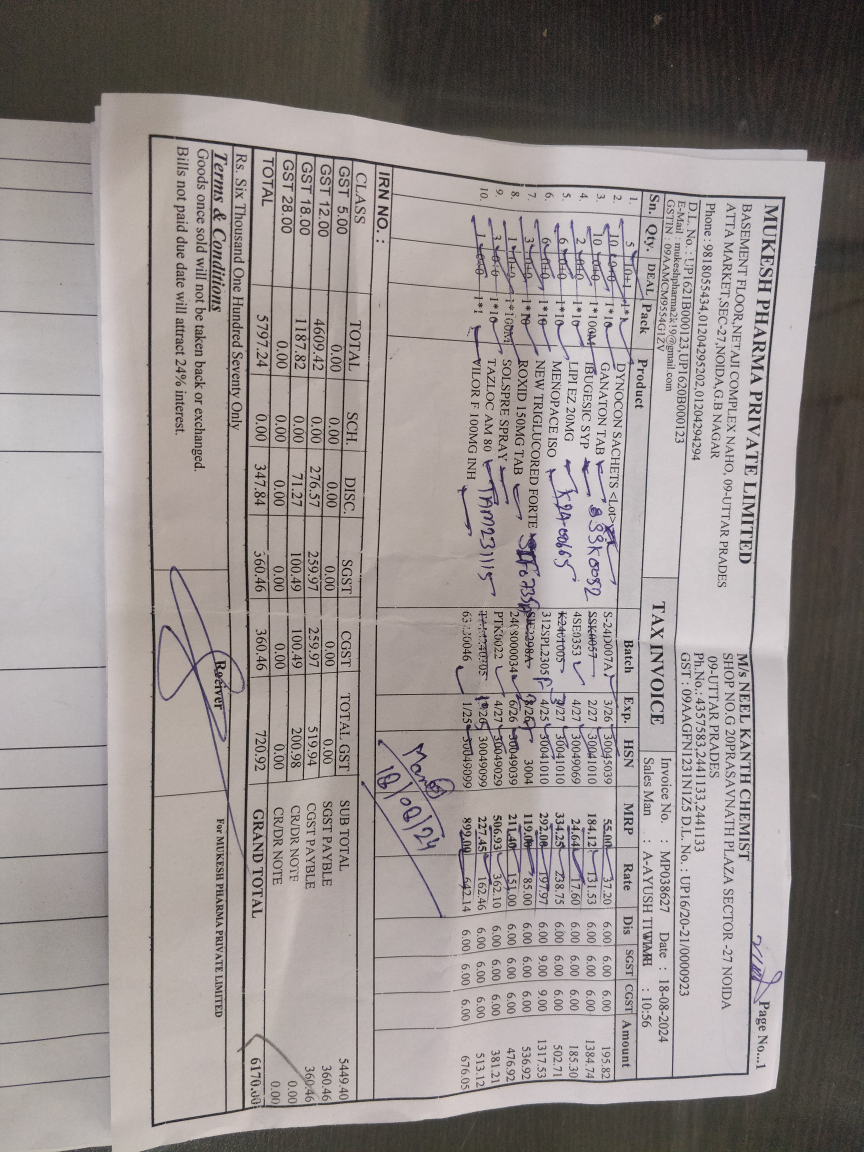 Page No...1
MUKESH PHARMA PRIVATE LIMITED
BASEMENT FLOOR,NETAJI COMPLEX NAHO, 09-UTTAR PRADES
ATTA MARKET,SEC-27,NOIDA,G.B NAGAR
Phone : 9818055434,01204295202,01204294294
D.L. No. : UP1621B000123,UP1620B000123
E-Mail : mukeshpharma2k19@gmail.com
GSTIN : 09AAMCM9554G1ZV
M/s NEEL KANTH CHEMIST
SHOP NO.G 20PRASAVNATH PLAZA SECTOR -27 NOIDA
09-UTTAR PRADES
Ph.No.: 4357583,2441133,2441133
GST : 09AAGFN1231N1Z5 D.L. No. : UP16/20-21/0000923
TAX INVOICE
Invoice No. : MP038627 Date : 18-08-2024
Sales Man : A-AYUSH TIWARI : 10:56
Sn. Qty. DEAL Pack Product Batch Exp. HSN MRP Rate Dis SGST CGST Amount
1. 5 10+1 1*1 DYNOCON SACHETS <Lot> S-24D007A 3/26 30045039 55.00 37.20 6.00 6.00 6.00 195.82
2. 10 1*10 GANATON TAB 833K0052 SSK0057 2/27 30041010 184.12 131.53 6.00 6.00 6.00 1384.74
3. 10 1*100M IBUGESIC SYP 4SE0353 4/27 30049069 24.64 17.60 6.00 6.00 6.00 185.30
4. 2 1*10 LIPI EZ 20MG K2401005 /27 30041010 334.25 238.75 6.00 6.00 6.00 502.71
5. 6 1*10 MENOPACE ISO 312SPL2305 4/25 30041010 292.00 197.97 6.00 9.00 9.00 1317.53
6. 6 1*10 NEW TRIGLUCORED FORTE /26 3004 119.00 85.00 6.00 6.00 6.00 536.92
7. 3 1*10 ROXID 150MG TAB 6/26 30049039 211.40 151.00 6.00 6.00 6.00 476.92
8. 1 1*100M SOLSPRE SPRAY PTK0022 4/27 30049029 506.93 362.10 6.00 6.00 6.00 381.21
9. 3 1*10 TAZLOC AM 80 TAM231115 30049099 227.45 162.46 6.00 6.00 6.00 513.12
10. 1 1*1 VILOR F 100MG INH 1/25 30049099 899.00 642.14 6.00 6.00 6.00 676.05
18/08/24
IRN NO. :
CLASS TOTAL SCH. DISC. SGST CGST TOTAL GST
GST 5.00 0.00 0.00 0.00 0.00 0.00 0.00
GST 12.00 4609.42 0.00 276.57 259.97 259.97 519.94
GST 18.00 1187.82 0.00 71.27 100.49 100.49 200.98
GST 28.00 0.00 0.00 0.00 0.00 0.00 0.00
TOTAL 5797.24 0.00 347.84 360.46 360.46 720.92
SUB TOTAL 5449.40
SGST PAYBLE 360.46
CGST PAYBLE 360.46
CR/DR NOTE 0.00
CR/DR NOTE 0.00
Rs. Six Thousand One Hundred Seventy Only
GRAND TOTAL 6170.00
Terms & Conditions
Goods once sold will not be taken back or exchanged.
Bills not paid due date will attract 24% interest.
Receiver
For MUKESH PHARMA PRIVATE LIMITED